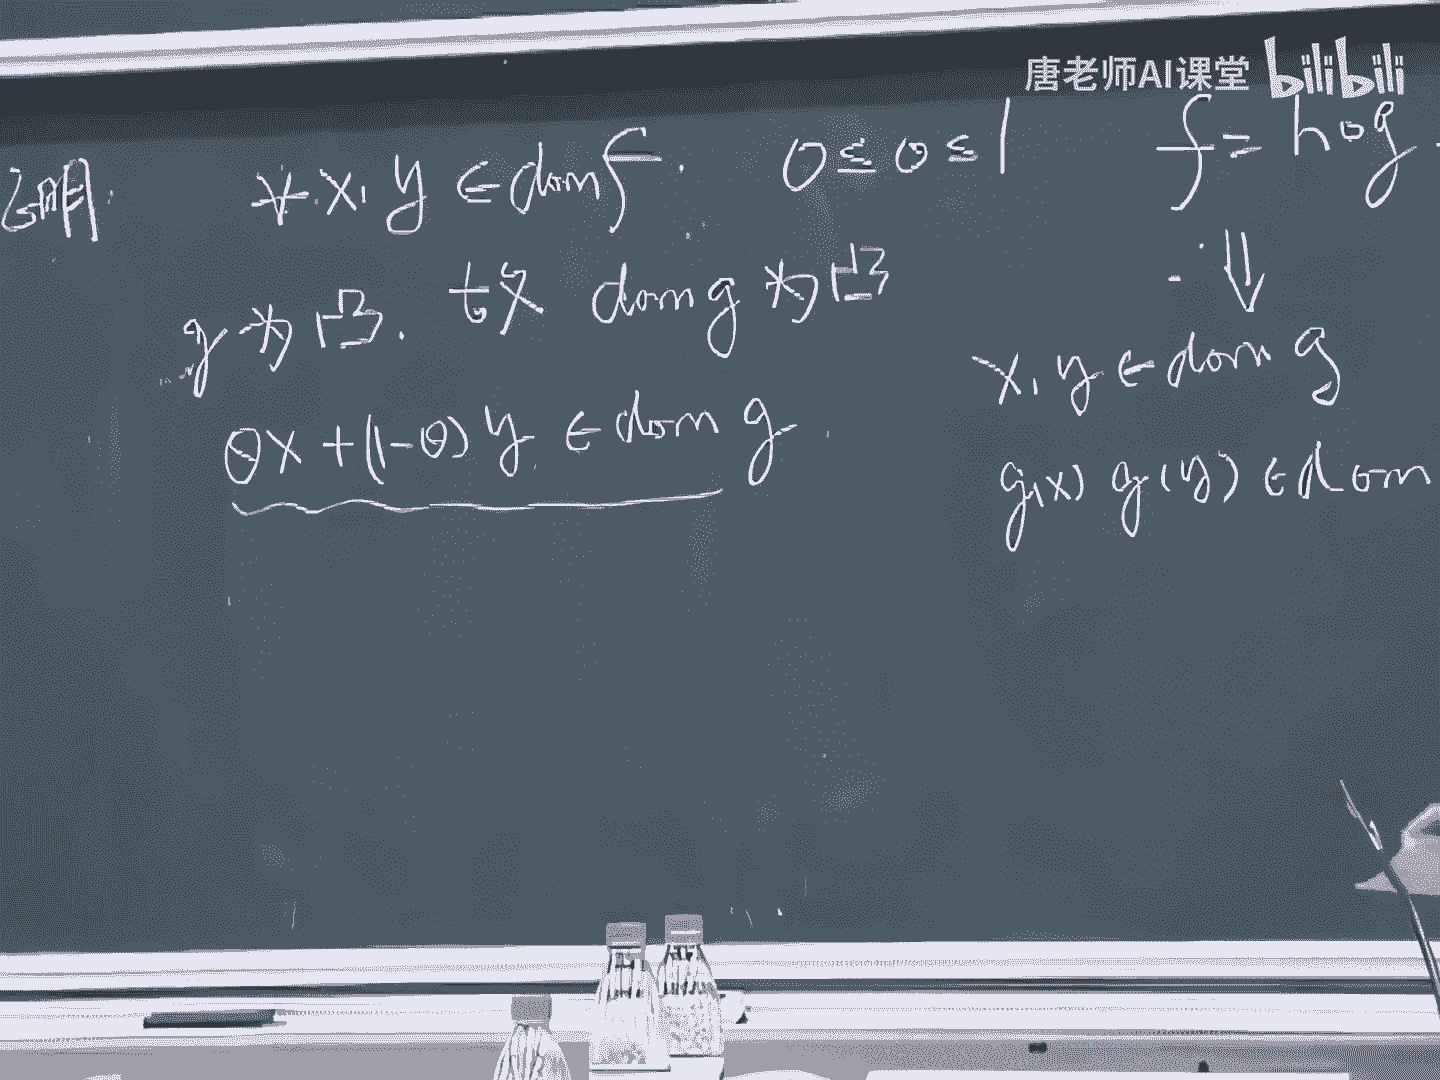 唐老师AI课堂 bilibili
证明: ∀ x, y ∈ dom f. 0 ≤ θ ≤ 1 f = h∘g.
g 为凸. dom g 为凸 ⇓
x, y ∈ dom g
θx + (1-θ) y ∈ dom g
g(x) g(y) ∈ dom